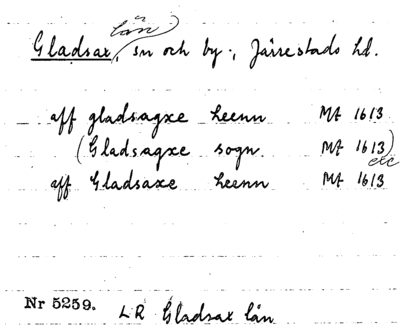 län
Gladsax, sn och by, Järrestads hd.
aff gladsagxe heenn Mt 1613
(Gladsagxe sogn. Mt 1613)
etc
aff Gladsaxe heenn Mt 1613
Nr 5259. LR Gladsax län